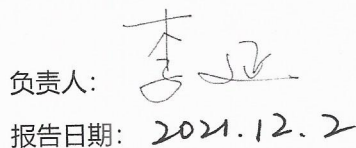 负责人: 李延
报告日期: 2021.12.2